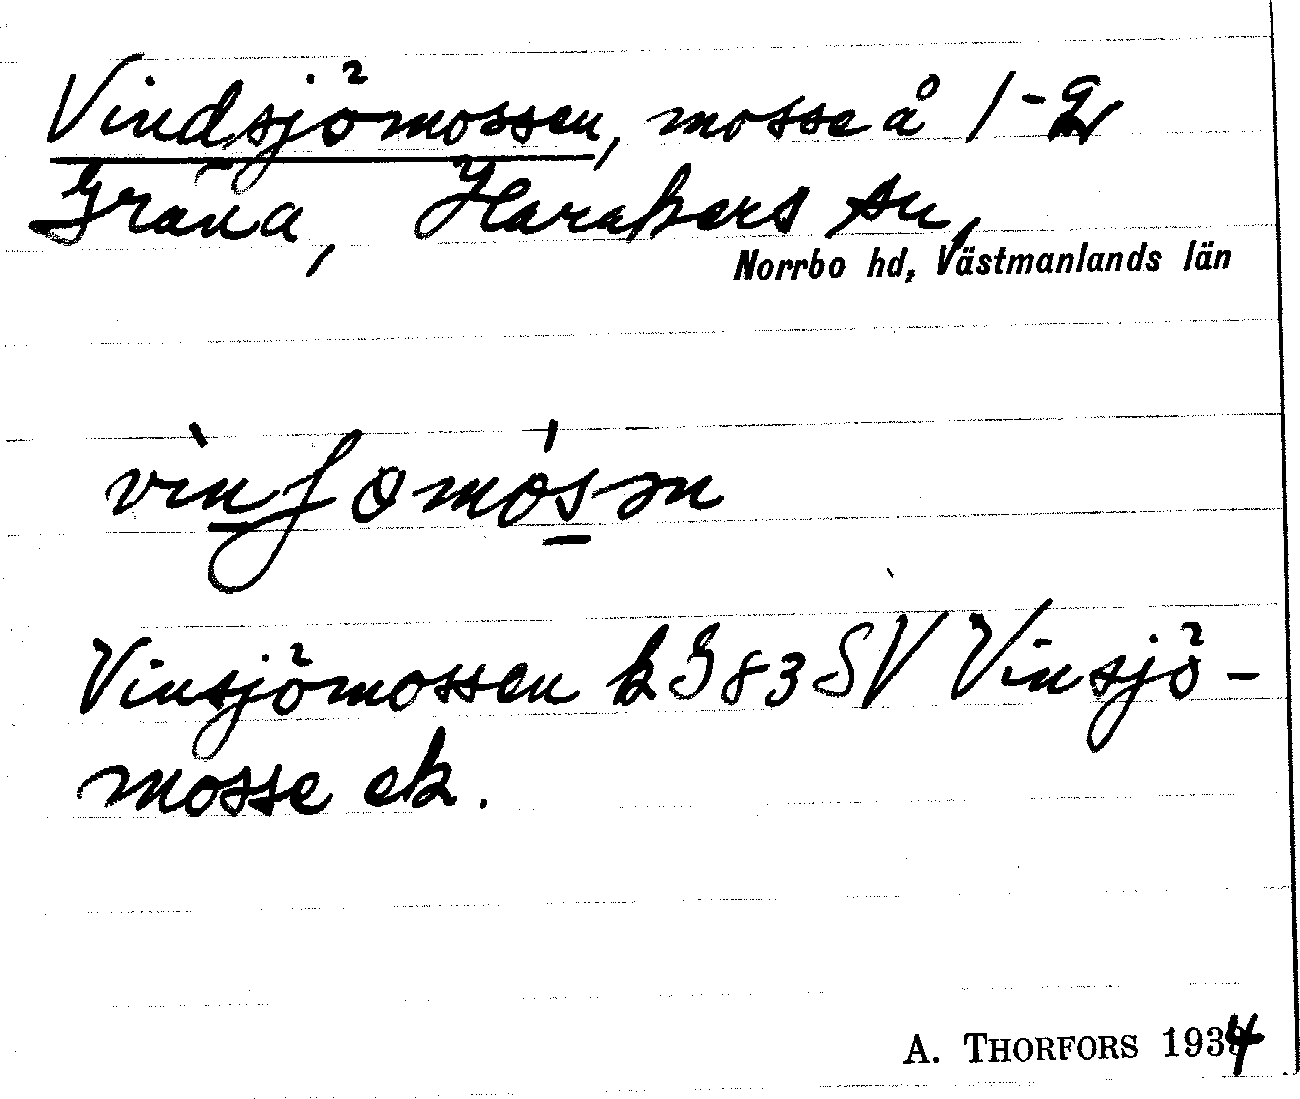 Vindsjömossen, mosse å 1-2
Gräna, Harakers sn,
Norrbo hd, Västmanlands län
vìnʃomósən
Vinsjömossen k G 83 SV Vinsjö-
mosse ek.
A. THORFORS 1934